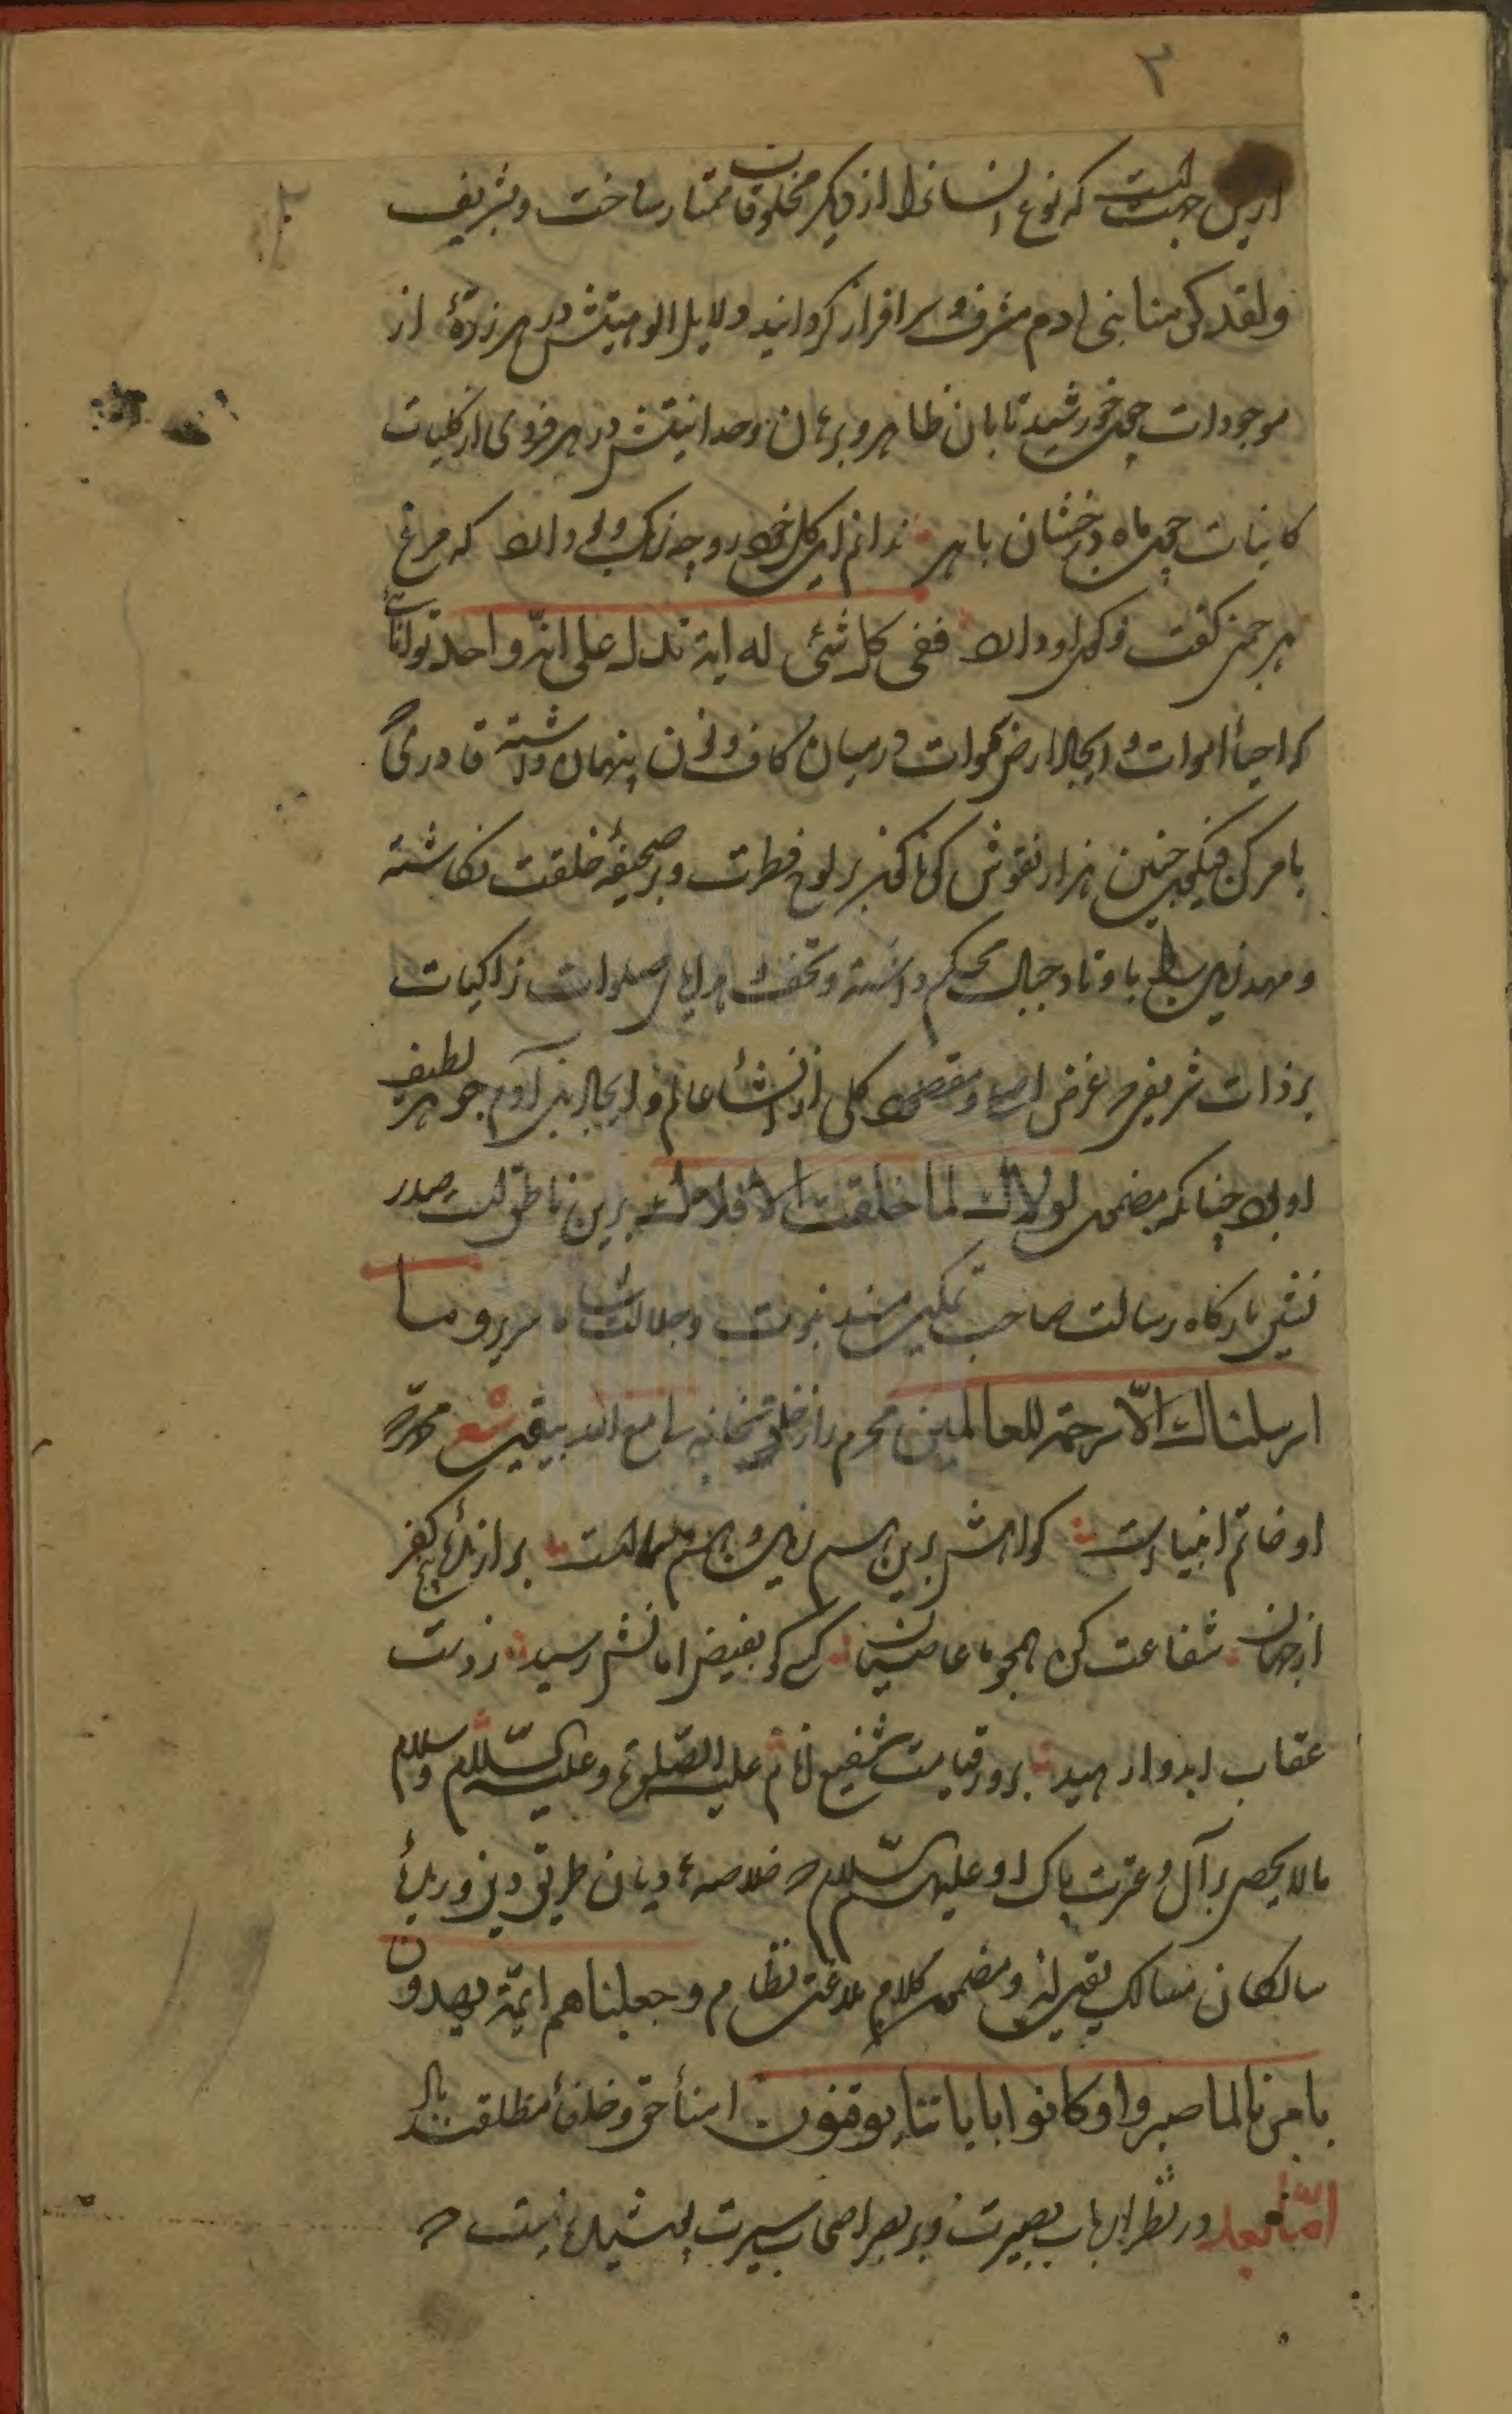 ٣
ازین جهتست که نوع انسانرا از دیکر مخلوقات ممتاز ساخت و بتشریف
ولقد کرمنا بنی ادم مشرف و سرافراز کردانید و دلایل الوهیتش در هر ذرهٔ از
موجودات چون خورشید تابان ظاهر و برهان وحدانیتش در هر فردی از کلیات
کاینات چون ماه درخشان باهر ندانم این کل خود رو چه رنک و بو دارد که مرغ
هر چمن کفت و کوی او دارد ففی کل شئی له ایة تدل علی انه واحد توانائی
که احیأ اموات و ایجاد ارض و سموات در میان کاف و نون پنهان داشته قادری که
بامر کن فیکون چنین هزار نقوش کوناکون بر لوح فطرت و بر صحیفهٔ خلقت نکاشته
و مهد زمین بساط باوتاد جبال محکم داشته و تحف هدایای صلوات زاکیات
بر ذات شریفی که غرض اصلی و مقصود کلی از انشأ عالم و ایجاد بنی آدم جوهر لطیف
او بود چنانکه مضمون لولاک لما خلقت الافلاک برین ناطق است صدر
نشین بارکاه رسالت صاحب تمکین مسند نبوت و جلالت شاه سریر وما
ارسلناک الا رحمة للعالمین محرم راز خلوتخانه لی مع الله بیقین شعر محمد که
او خاتم انبیاست کواهش برین هم زمین و هم سماست برازندهٔ کفر
از جهان شفاعت کن همچو ما عاصیان کسی کو بفیض امانش رسید ز دست
عقاب ابد وا رهید بروز قیامت شفیع انام علیه الصلوة و علیه السلام و سلام
مالایحصی بر آل و عترت پاک او علیهم السلام که خلاصهٔ هادیان طریق دین و زبدهٔ
سالکان مسالک یقین اند و مضمون کلام بلاغت نظام و جعلناهم ایمة یهدون
بامرنا لما صبروا و کانوا بایاتنا یوقنون امنأ حق و خلفأ مطلقند
اما بعد در نظر ارباب بصیرت و بر بصر اصحاب سیرت پوشیده نیست که